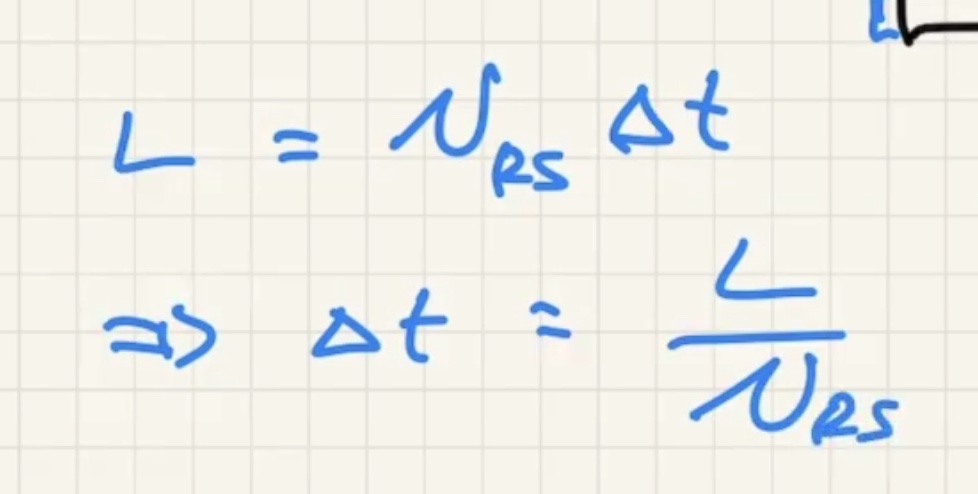 L = v_RS Δt
⇒ Δt = L / v_RS